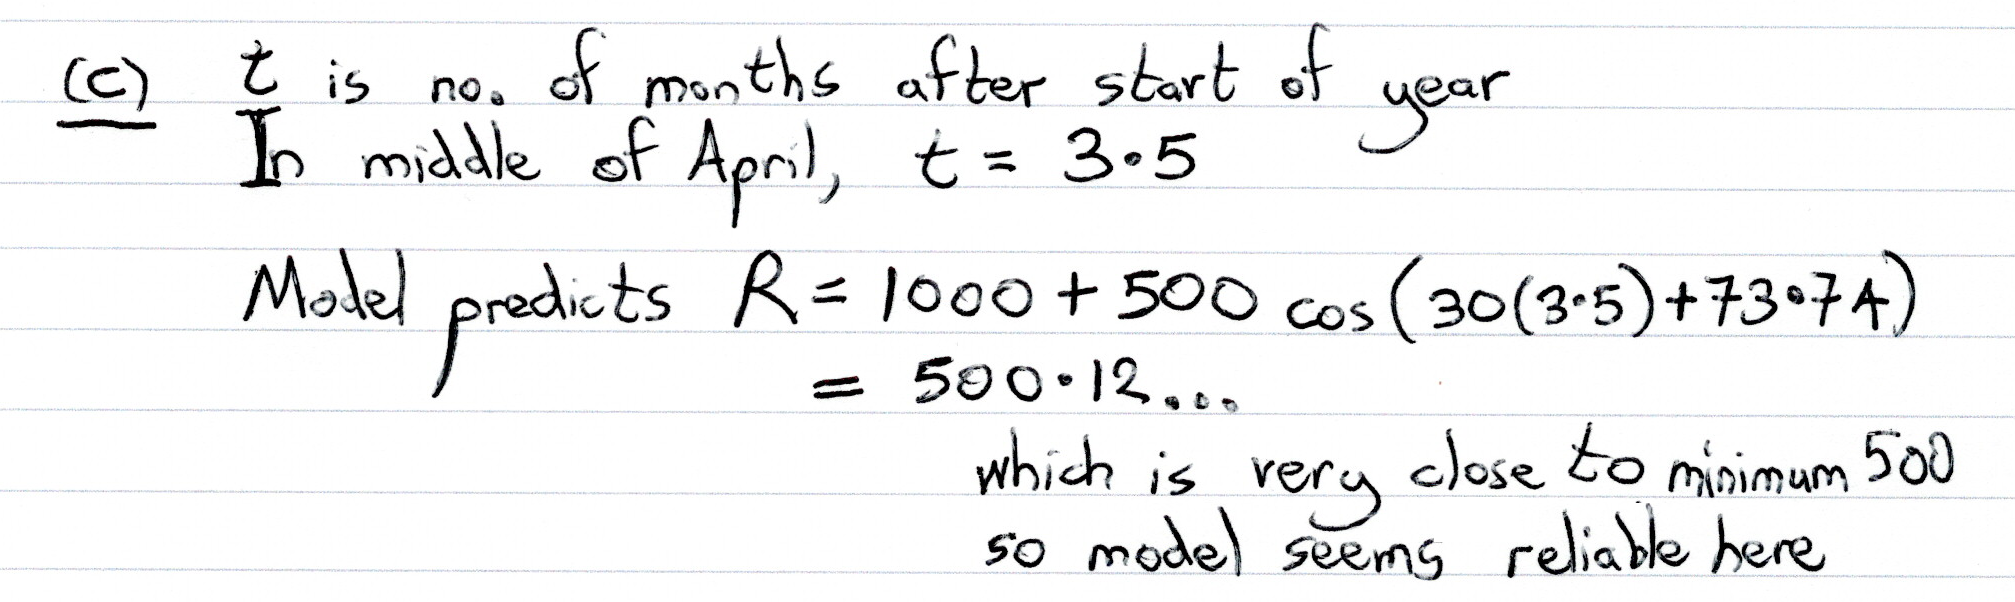 (c) t is no. of months after start of year
In middle of April, t = 3·5
Model predicts R = 1000 + 500 cos(30(3·5)+73·74)
= 500·12...
which is very close to minimum 500
so model seems reliable here